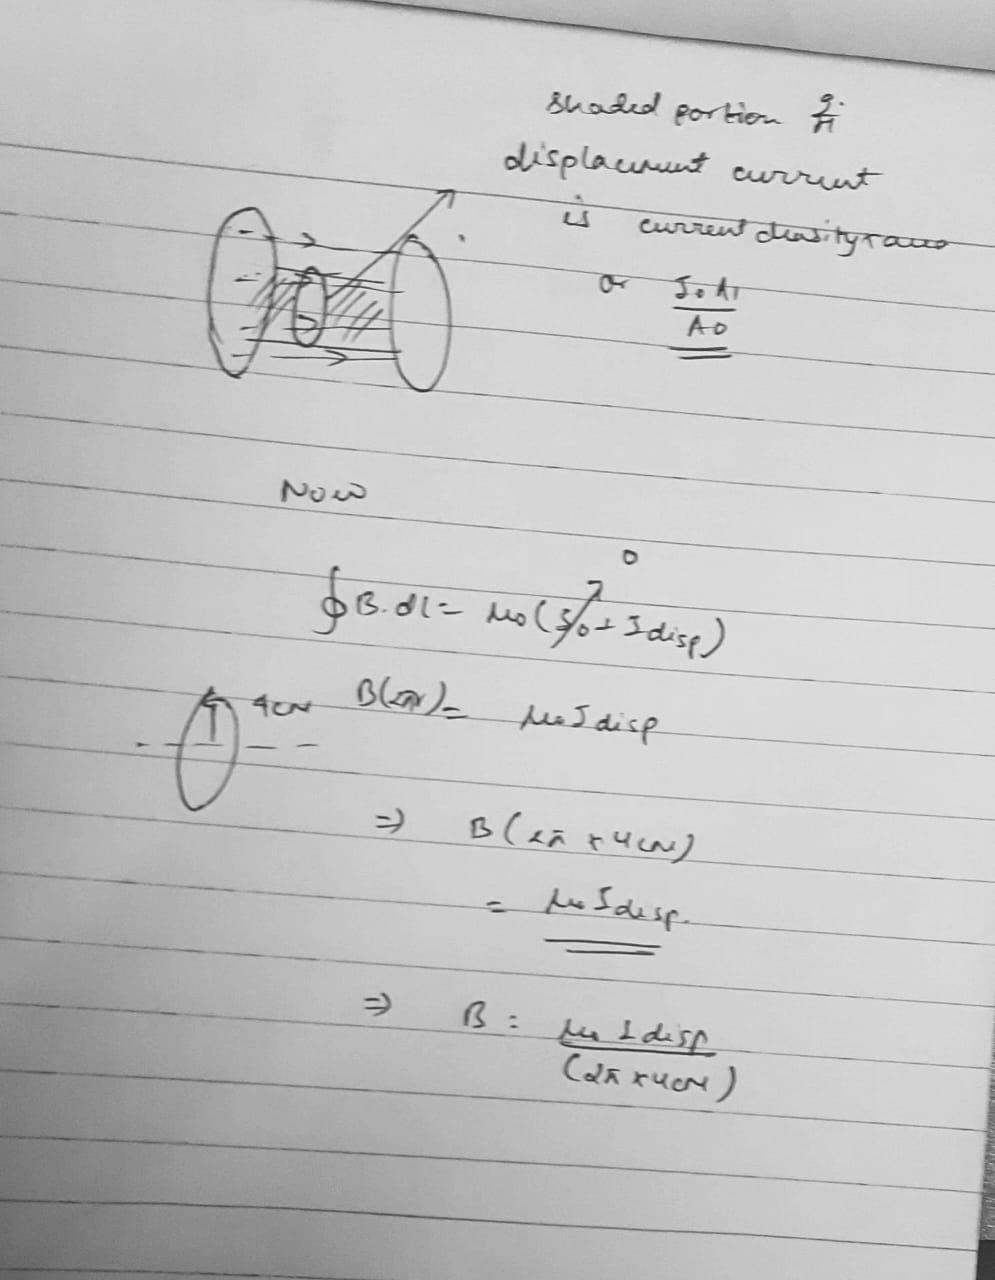 shaded portion
displacement current
is current density × area
or I₀A₁
A₀
Now
0
∮B.dl = μ₀(I₀ + Idisp)
4cm B(2πr) = μ₀Idisp
⇒ B(2π × 4cm)
= μ₀Idisp.
⇒ B = μ₀Idisp
(2π × 4cm)